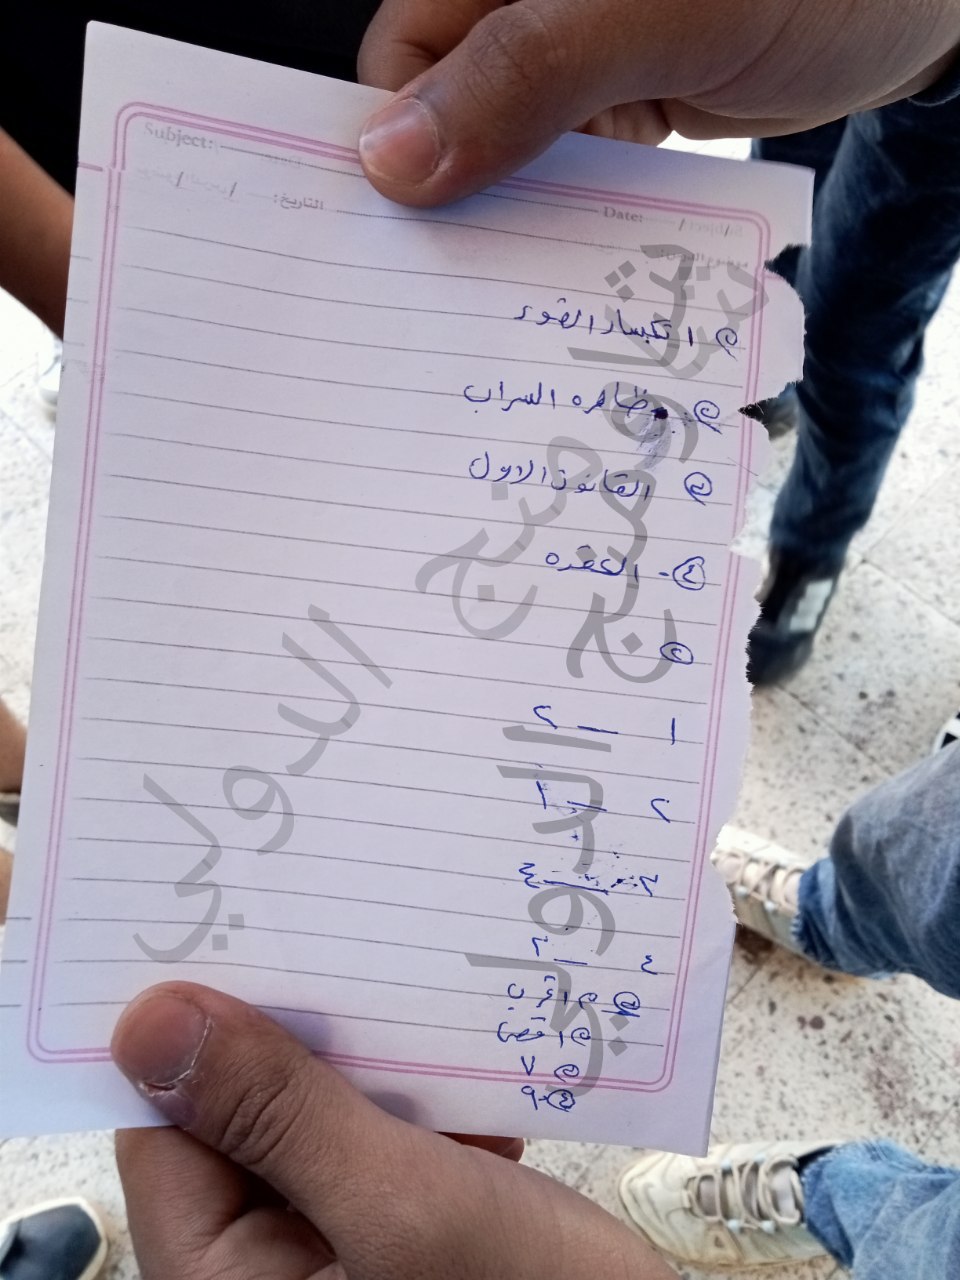 Subject:
Date: / /
التاريخ: / /
① انكسار الضوء
② ظاهره السراب
③ القانون الاول
④- العقده
⑤
١ — ٢
٢ — ١
٣ — ٤
٤ — ٣
⑥ ① اقرب
② اقصى
③ ٧
④-٩
بشار مفتح الدولي
بشار مفتح الدولي